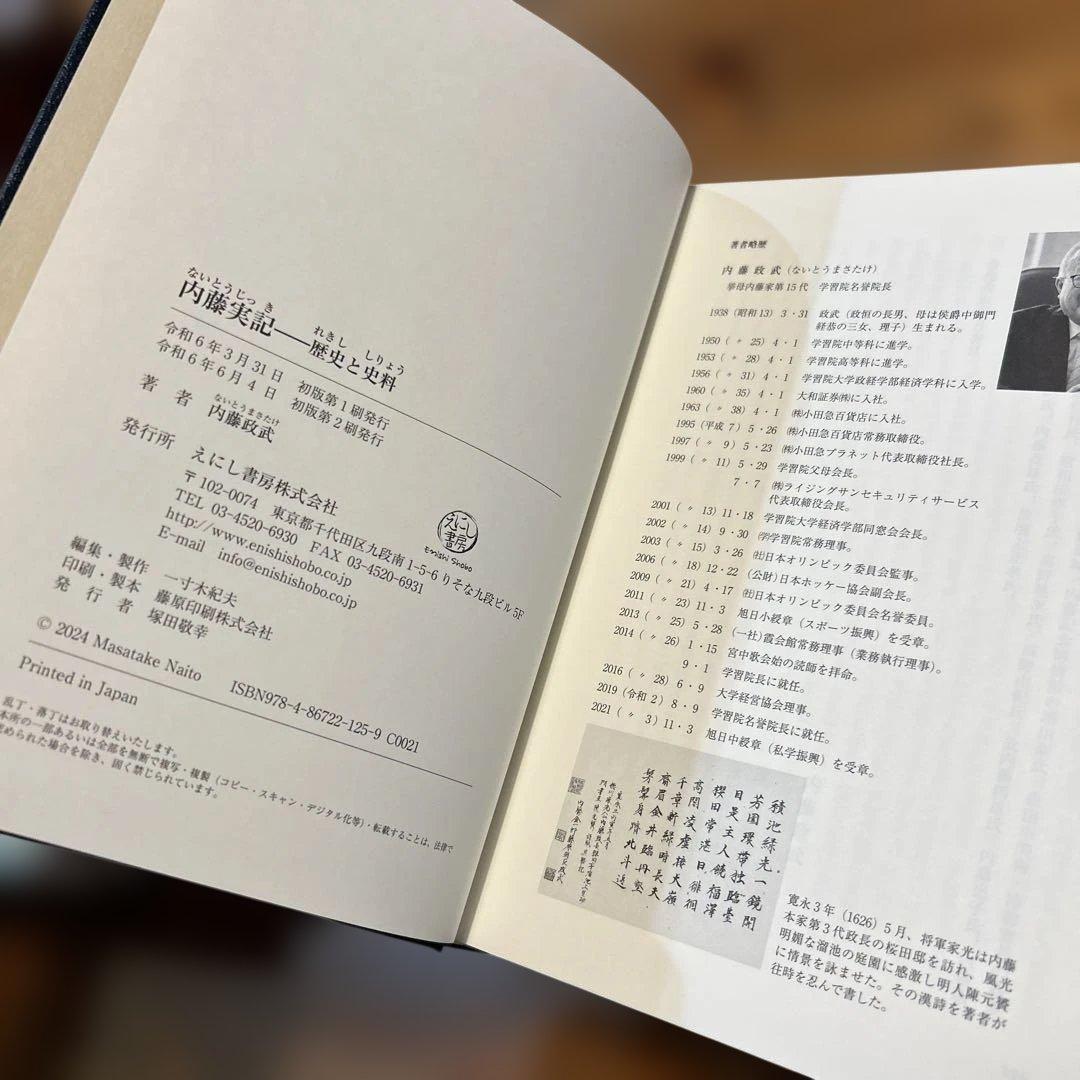 ないとうじっき
内藤実記――歴史と史料
れきし しりょう
令和6年3月31日 初版第1刷発行
令和6年6月4日 初版第2刷発行
著者 内藤政武
ないとうまさたけ
発行所 えにし書房株式会社
〒102-0074 東京都千代田区九段南1-5-6 りそな九段ビル5F
TEL 03-4520-6930 FAX 03-4520-6931
http://www.enishishobo.co.jp
E-mail info@enishishobo.co.jp
えにし書房
Enishi Shobo
編集・製作 一寸木紀夫
印刷・製本 藤原印刷株式会社
発行者 塚田敬幸
© 2024 Masatake Naito ISBN978-4-86722-125-9 C0021
Printed in Japan
乱丁・落丁はお取り替えいたします。
本所の一部あるいは全部を無断で複写・複製(コピー・スキャン・デジタル化等)・転載することは、法律で
認められた場合を除き、固く禁じられています。
著者略歴
内藤政武(ないとうまさたけ)
挙母内藤家第15代 学習院名誉院長
1938(昭和13)3・31 政武(政恒の長男、母は侯爵中御門
経恭の三女、理子)生まれる。
1950(〃 25)4・1 学習院中等科に進学。
1953(〃 28)4・1 学習院高等科に進学。
1956(〃 31)4・1 学習院大学政経学部経済学科に入学。
1960(〃 35)4・1 大和証券㈱に入社。
1963(〃 38)4・1 ㈱小田急百貨店に入社。
1995(平成7)5・26 ㈱小田急百貨店常務取締役。
1997(〃 9)5・23 ㈱小田急プラネット代表取締役社長。
1999(〃 11)5・29 学習院父母会長。
7・7 ㈱ライジングサンセキュリティサービス
代表取締役会長。
2001(〃 13)11・18 学習院大学経済学部同窓会会長。
2002(〃 14)9・30 ㈻学習院常務理事。
2003(〃 15)3・26 ㈳日本オリンピック委員会監事。
2006(〃 18)12・22 (公財)日本ホッケー協会副会長。
2009(〃 21)4・17 ㈳日本オリンピック委員会名誉委員。
2011(〃 23)11・3 旭日小綬章(スポーツ振興)を受章。
2013(〃 25)5・28 (一社)霞会館常務理事(業務執行理事)。
2014(〃 26)1・15 宮中歌会始の読師を拝命。
9・1 学習院長に就任。
2016(〃 28)6・9 大学経営協会理事。
2019(令和2)8・9 学習院名誉院長に就任。
2021(〃 3)11・3 旭日中綬章(私学振興)を受章。
積池緑光一鏡開
芳園環帯独臨臺
日是主人饒福澤
櫻田常湛日徘徊
高閣凌虚接大嶺
千章新緑時長夫
齊眉金井臨丹壑
寛永3年(1626)5月、将軍家光は内藤
本家第3代政長の桜田邸を訪れ、風光
明媚な溜池の庭園に感激し明人陳元贇
に情景を詠ませた。その漢詩を著者が
往時を忍んで書した。